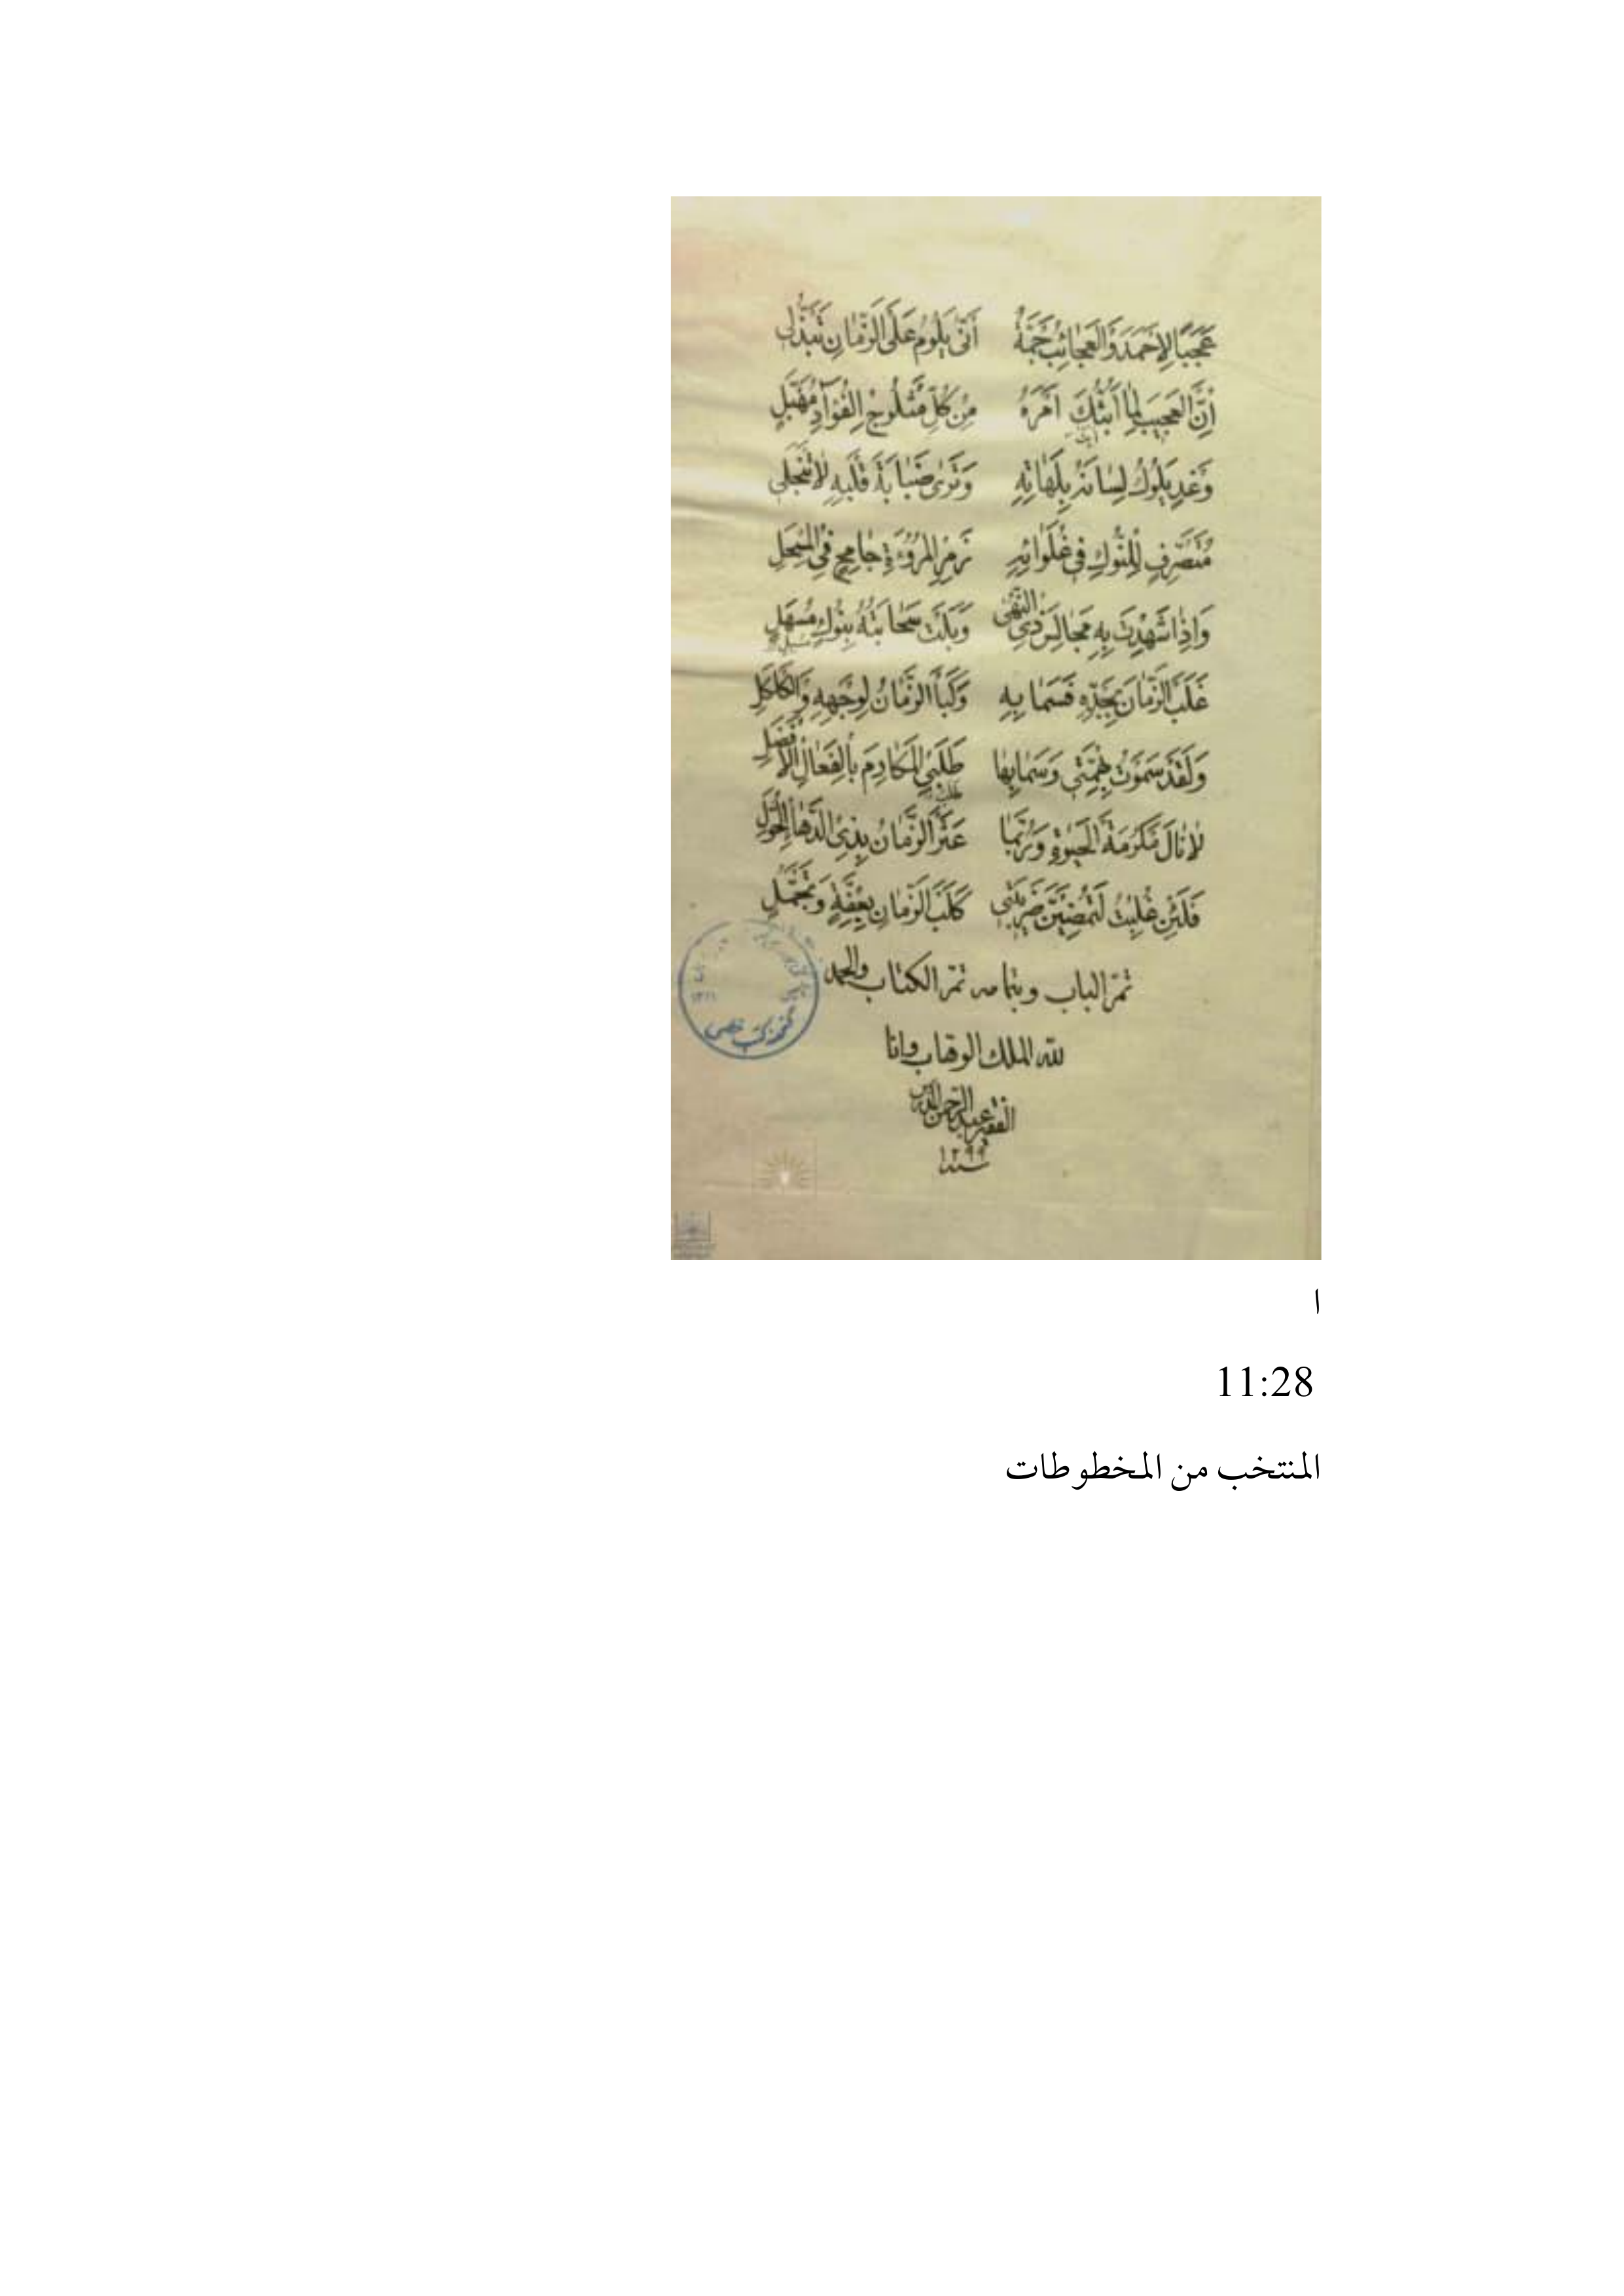 عَجَبًا لِأَحْمَدَ وَالْعَجَائِبُ جَمَّةٌ أَنَّى يَلُومُ عَلَى الزَّمَانِ تَبَذُّلِي
إِنَّ الْعَجِيبَ لِمَا أَبُثُّكَ أَمْرَهُ مِنْ كُلِّ مَثْلُوجِ الْفُؤَادِ مُهَبَّلِ
وَغْدٍ يَلُوكُ لِسَانَهُ بِلَهَاتِهِ وَتَرَى ضَبَابَةَ قَلْبِهِ لَا تَنْجَلِي
مُتَصَرِّفٍ لِلنُّوكِ فِي غُلَوَائِهِ زَمِرِ الْمُرُوءَةِ جَامِحٍ فِي الْمِسْحَلِ
وَإِذَا شَهِدْتَ بِهِ مَجَالِسَ ذِي النُّهَى وَبَلَتْ سَحَابَتُهُ بِنُوكٍ مُسْهَلِ
غَلَبَ الزَّمَانَ بِجَدِّهِ فَسَمَا بِهِ وَكَبَا الزَّمَانُ لِوَجْهِهِ وَالْكَلْكَلِ
وَلَقَدْ سَمَوْتُ بِهِمَّتِي وَسَمَا بِهَا طَلَبِي الْمَكَارِمَ بِالْفَعَالِ الْأَفْضَلِ
لِأَنَالَ مَكْرُمَةَ الْحَيٰوةِ وَرُبَّمَا عَثَرَ الزَّمَانُ بِذِي الدَّهَاءِ الْحُوَّلِ
فَلَئِنْ غُلِبْتُ لَتَمْضِيَنَّ ضَرِيبَتِي كَلَبَ الزَّمَانِ بِعِفَّةٍ وَتَجَمُّلِ
تمّ الباب وبتمامه تمّ الكتاب والحمد
لله الملك الوهاب وانا
الفقير عبد الرحمن
سنة ١٢٩٩
ا
11:28
المنتخب من المخطوطات